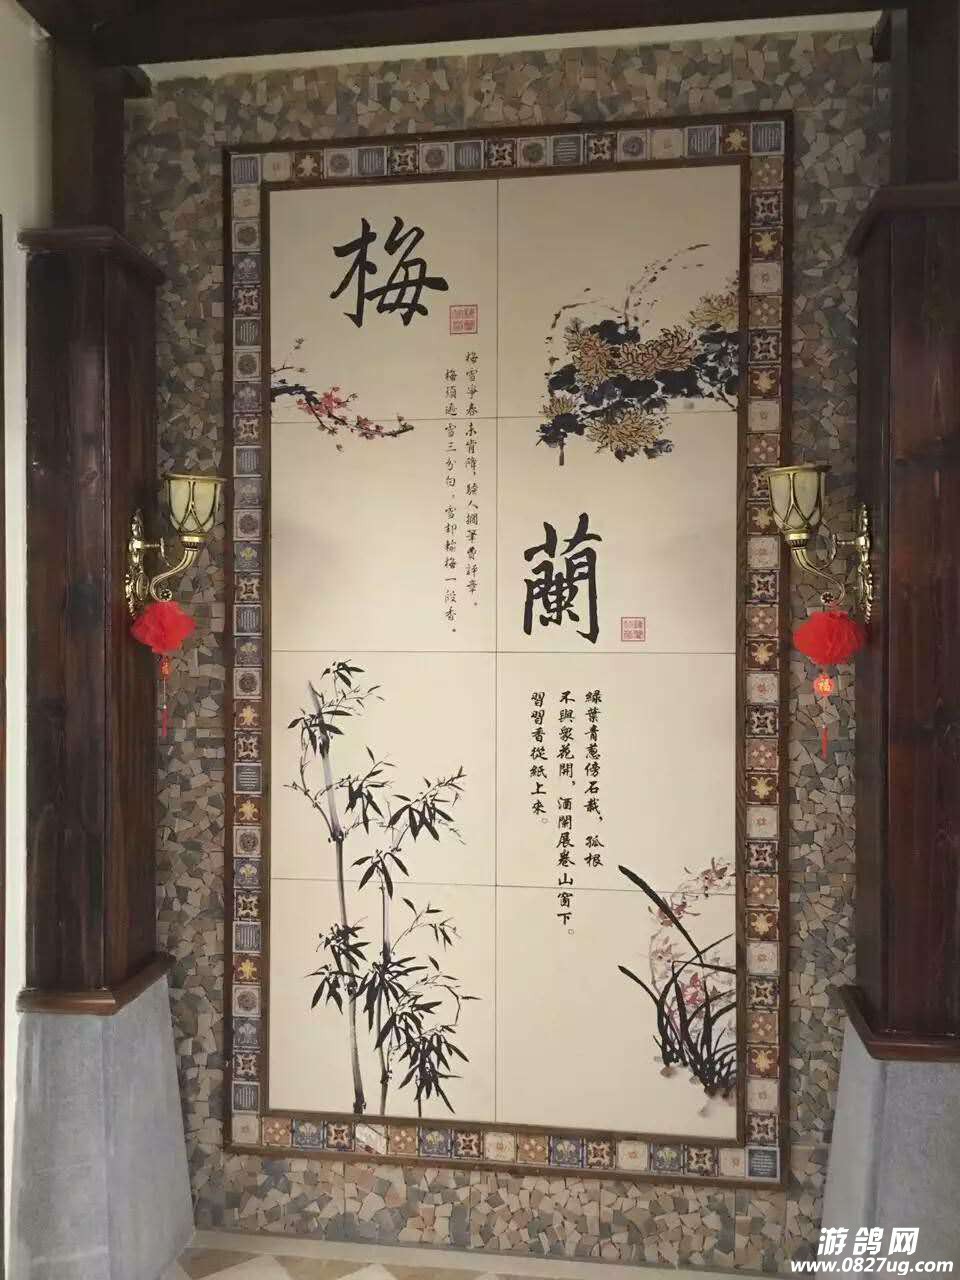 梅
梅雪爭春未肯降，騷人擱筆費評章。
梅須遜雪三分白，雪卻輸梅一段香。
蘭
綠葉青蔥傍石栽，孤根
不與衆花開，酒闌展卷山窗下。
習習香從紙上來。
福
福
游鸽网
www.0827ug.com